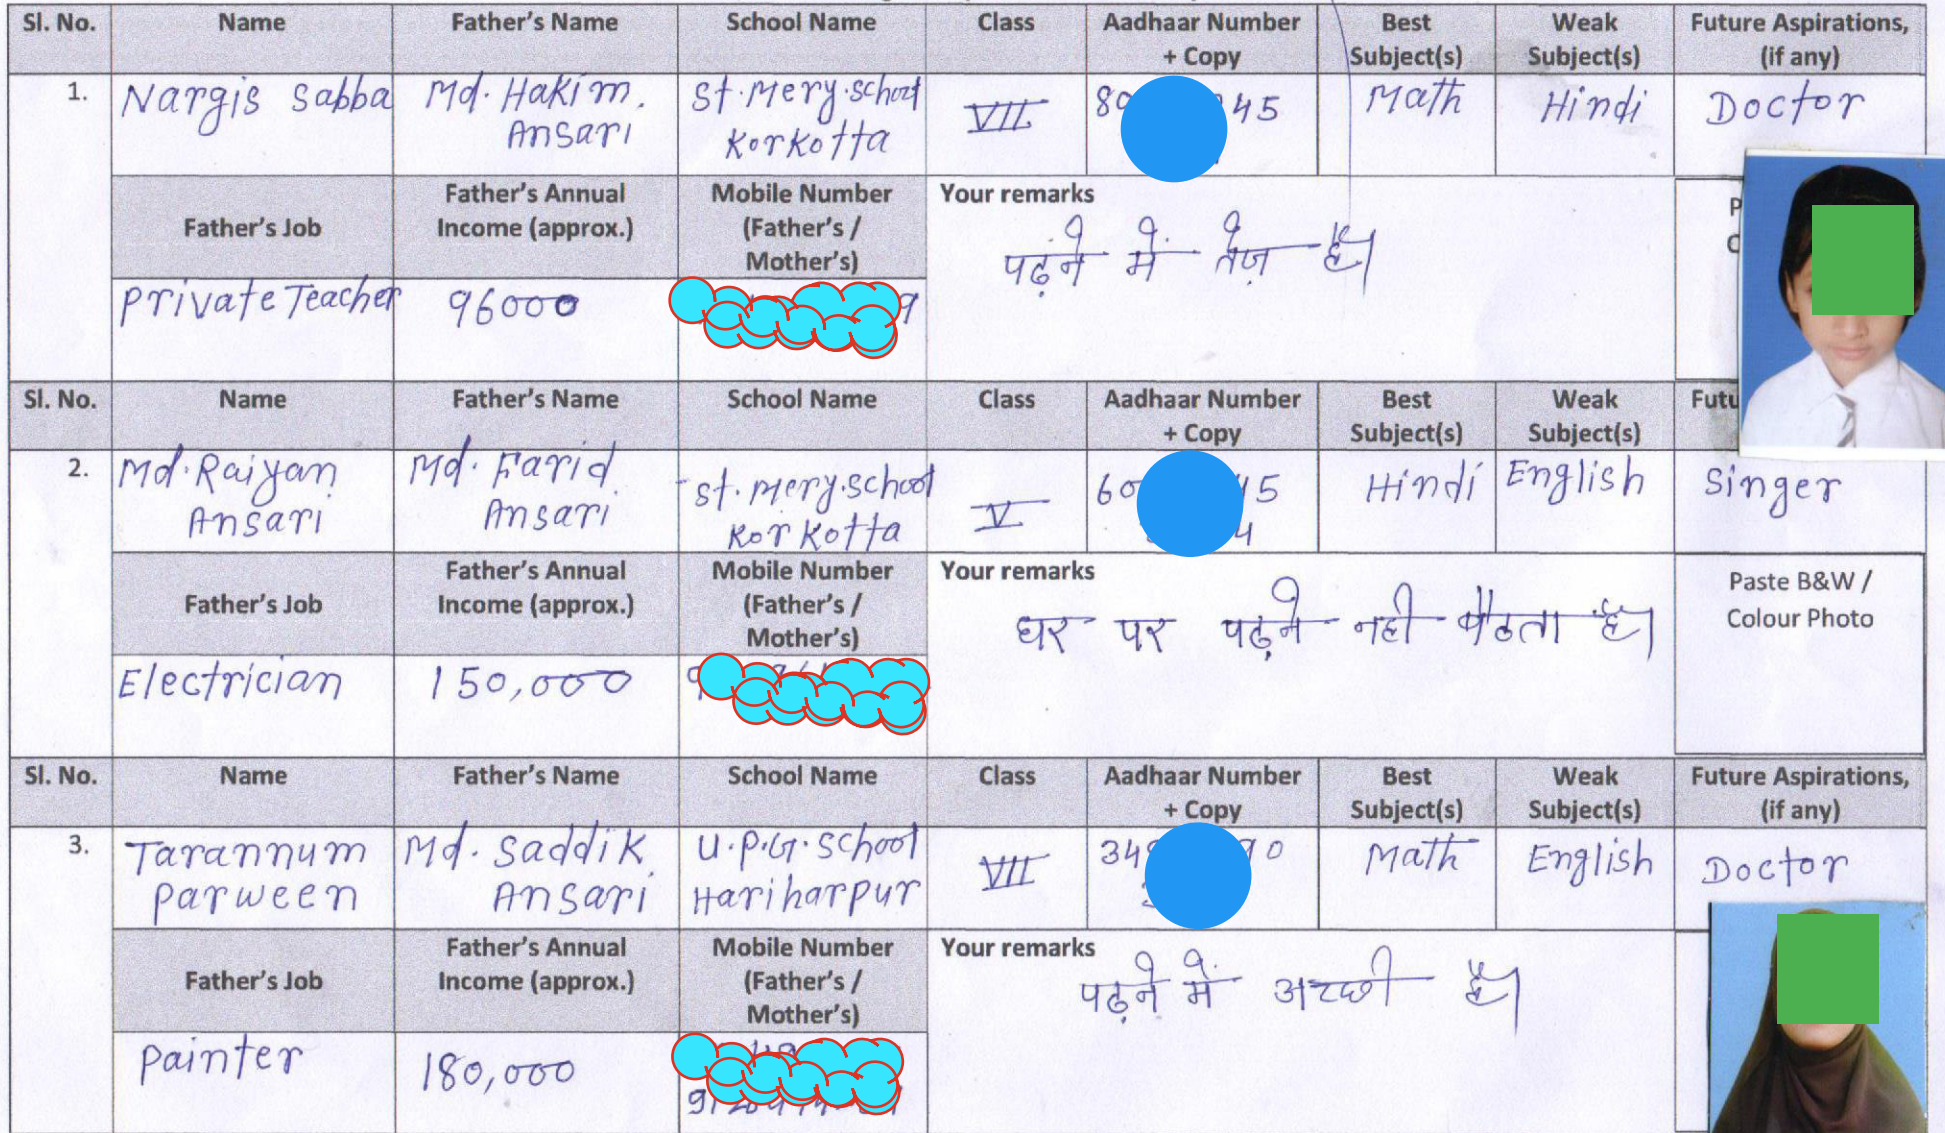 Sl. No. Name Father's Name School Name Class Aadhaar Number + Copy Best Subject(s) Weak Subject(s) Future Aspirations, (if any)
1. Nargis Sabba Md. Hakim. Ansari St. Mery. School Korkotta VII 80 45 Math Hindi Doctor
Father's Job Father's Annual Income (approx.) Mobile Number (Father's / Mother's) Your remarks
पढ़ने में तेज़ है।
Private Teacher 96000 9
Sl. No. Name Father's Name School Name Class Aadhaar Number + Copy Best Subject(s) Weak Subject(s)
2. Md. Raiyan Ansari Md. Farid Ansari St. Mery. School Korkotta V 60 45 4 Hindi English Singer
Father's Job Father's Annual Income (approx.) Mobile Number (Father's / Mother's) Your remarks Paste B&W / Colour Photo
घर पर पढ़ने नही बैठता है।
Electrician 150,000
Sl. No. Name Father's Name School Name Class Aadhaar Number + Copy Best Subject(s) Weak Subject(s) Future Aspirations, (if any)
3. Tarannum Parween Md. Saddik Ansari U.P.G. School Hariharpur VII 34 90 Math English Doctor
Father's Job Father's Annual Income (approx.) Mobile Number (Father's / Mother's) Your remarks
पढ़ने में अच्छी है।
Painter 180,000